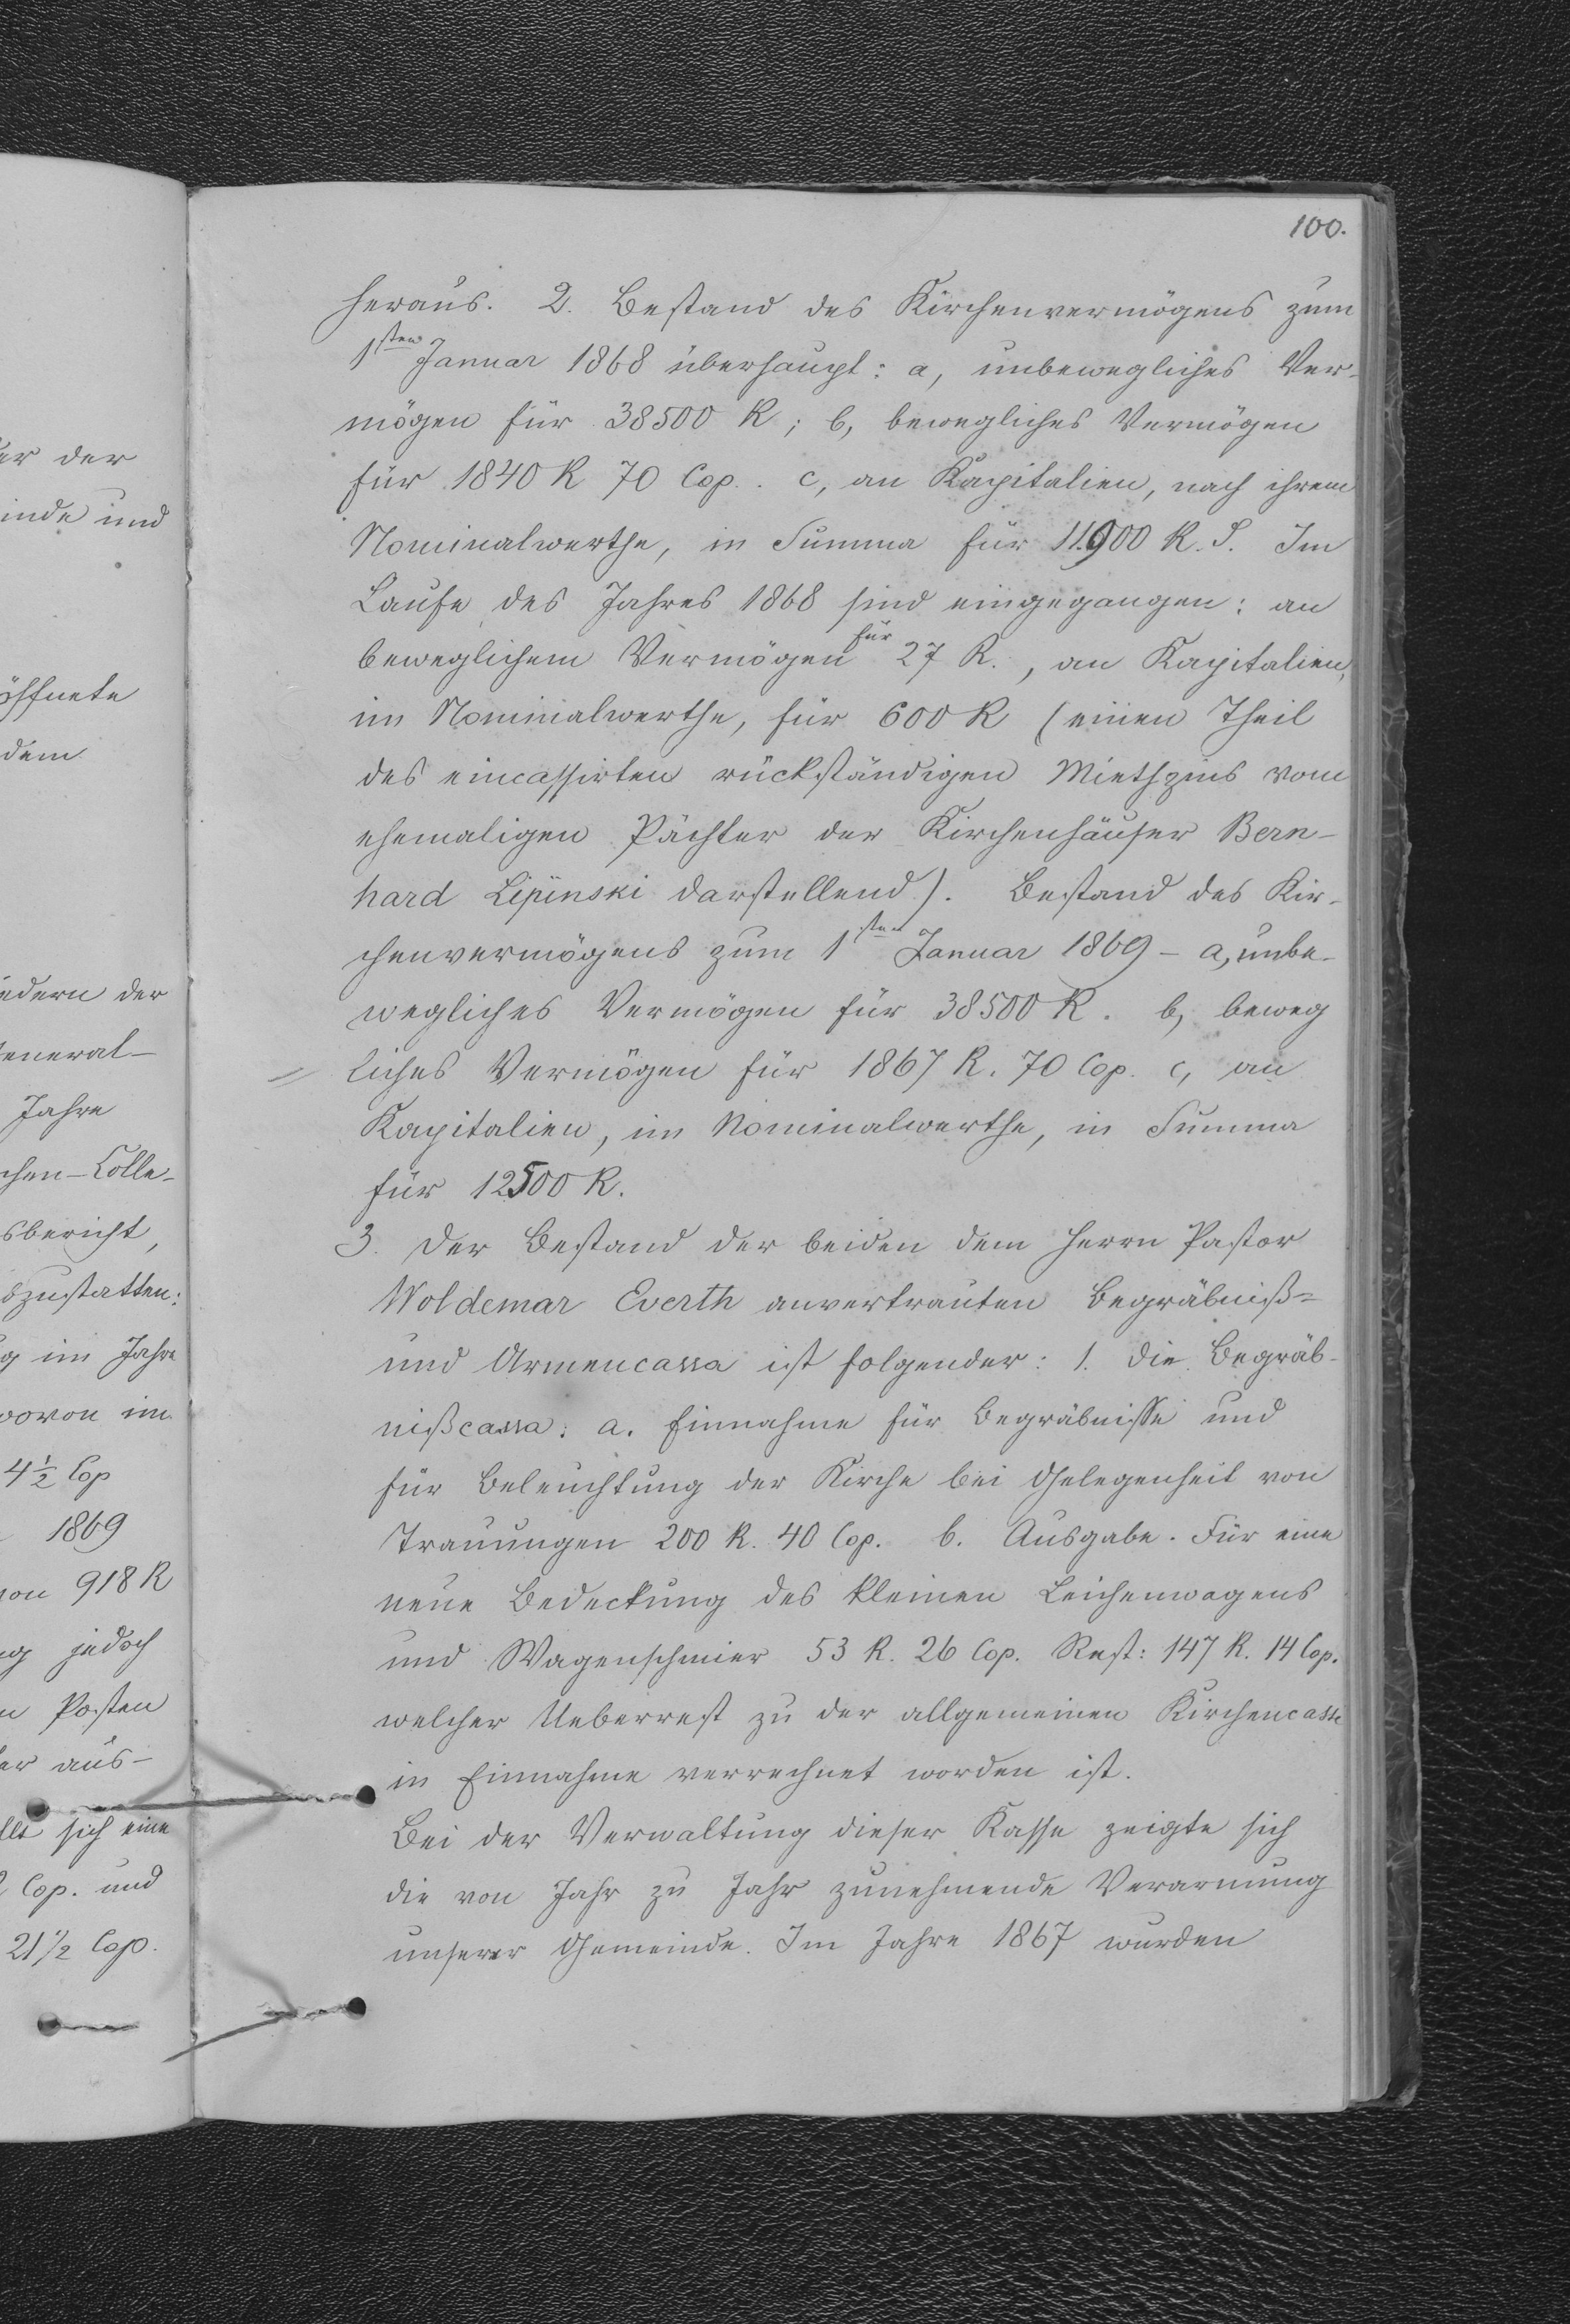 ur der
inde und
öffnete
dem
edern der
General-
Jahre
chen-Colle-
sbericht,
bzustatten:
g im Jahre
wovon im
4 1/2 Cop
1869
von 918 R
ng jedoch
n Posten
er aus-
llt sich eine
Cop. und
21 1/2 Cop.
100.
heraus. 2. Bestand des Kirchenvermögens zum
1sten Januar 1868 überhaupt: a, unbewegliches Ver-
mögen für 38500 R; b, bewegliches Vermögen
für 1840 R 70 Cop. c, an Kapitalien, nach ihrem
Nominalwerthe, in Summa für 11900 R. S. Im
Laufe des Jahres 1868 sind eingegangen: an
beweglichem Vermögen für 27 R., an Kapitalien,
im Nominalwerthe, für 600 R (einen Theil
des eincassirten rückständigen Miethzins vom
ehemaligen Pächter der Kirchenhäuser Bern-
hard Lipinski darstellend). Bestand des Kir-
chenvermögens zum 1sten Januar 1869 - a, unbe-
wegliches Vermögen für 38500 R. b, beweg
= liches Vermögen für 1867 R. 70 Cop. c, an
Kapitalien, im Nominalwerthe, in Summa
für 12500 R.
3. Der Bestand der beiden dem Herrn Pastor
Woldemar Everth anvertrauten Begräbniß=
und Armencassa ist folgender: 1. Die Begräb-
nißcassa: a. Einnahme für Begräbnisse und
für Beleuchtung der Kirche bei Gelegenheit von
Trauungen 200 R. 40 Cop. b. Ausgabe. Für eine
neue Bedeckung des kleinen Leichenwagens
und Wagenschmier 53 R. 26 Cop. Rest: 147 R. 14 Cop.
welcher Ueberrest zu der allgemeinen Kirchencasse
in Einnahme verrechnet worden ist.
Bei der Verwaltung dieser Kasse zeigte sich
die von Jahr zu Jahr zunehmende Verarmung
unserer Gemeinde. Im Jahre 1867 wurden